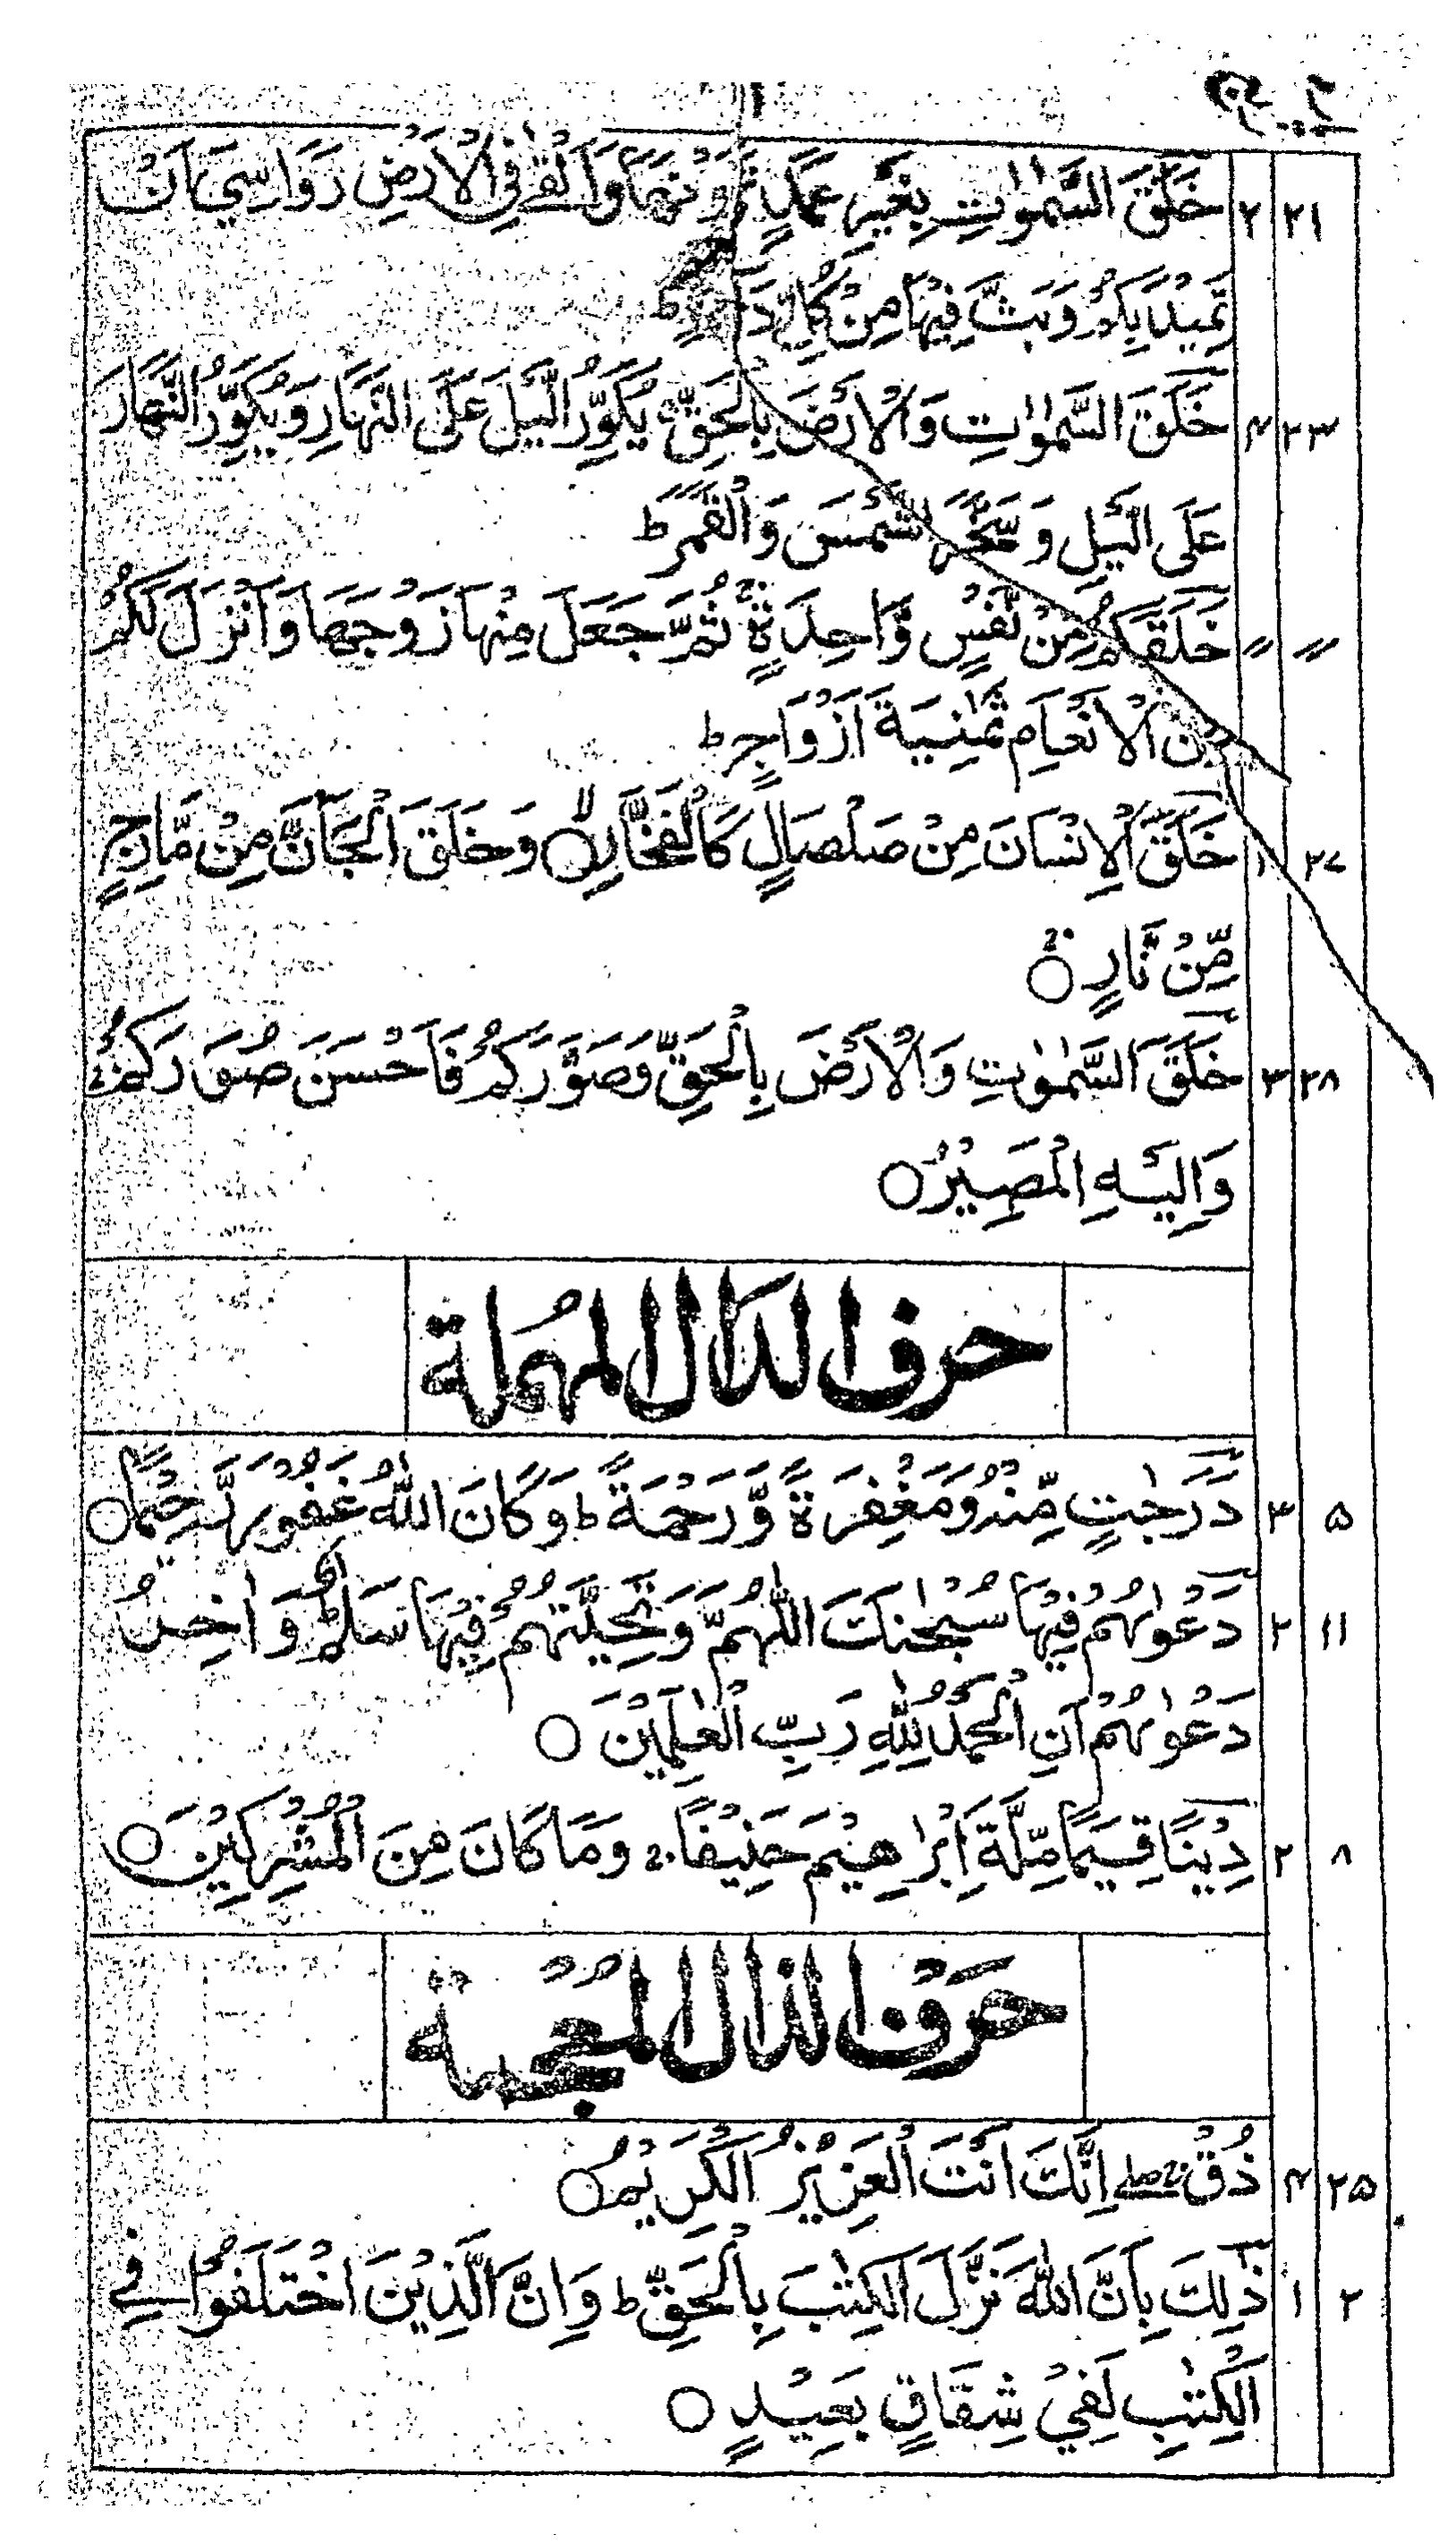 ۲۱ ۲ خَلَقَ السَّمٰوٰتِ بِغَیْرِ عَمَدٍ تَرَوْنَهَا وَاَلْقٰی فِی الْاَرْضِ رَوَاسِیَ اَنْ
تَمِیْدَ بِكُمْ وَبَثَّ فِیْهَا مِنْ كُلِّ دَآبَّةٍ ط
۲۳ ۴ خَلَقَ السَّمٰوٰتِ وَالْاَرْضَ بِالْحَقِّ یُكَوِّرُ الَّیْلَ عَلَی النَّهَارِ وَیُكَوِّرُ النَّهَارَ
عَلَی الَّیْلِ وَسَخَّرَ الشَّمْسَ وَالْقَمَرَ ط
〃 〃 خَلَقَكُمْ مِّنْ نَّفْسٍ وَّاحِدَةٍ ثُمَّ جَعَلَ مِنْهَا زَوْجَهَا وَاَنْزَلَ لَكُمْ
مِّنَ الْاَنْعَامِ ثَمٰنِیَةَ اَزْوَاجٍ ط
۲۷ ۱ خَلَقَ الْاِنْسَانَ مِنْ صَلْصَالٍ كَالْفَخَّارِ ○ وَخَلَقَ الْجَآنَّ مِنْ مَّارِجٍ
مِّنْ نَّارٍ ○
۲۸ ۳ خَلَقَ السَّمٰوٰتِ وَالْاَرْضَ بِالْحَقِّ وَصَوَّرَكُمْ فَاَحْسَنَ صُوَرَكُمْ
وَاِلَیْهِ الْمَصِیْرُ ○
حرف الدال المهملة
۵ ۳ دَرَجٰتٍ مِّنْهُ وَمَغْفِرَةً وَّرَحْمَةً ط وَكَانَ اللّٰهُ غَفُوْرًا رَّحِیْمًا ○
۱۱ ۲ دَعْوٰىهُمْ فِیْهَا سُبْحٰنَكَ اللّٰهُمَّ وَتَحِیَّتُهُمْ فِیْهَا سَلٰمٌ وَاٰخِرُ
دَعْوٰىهُمْ اَنِ الْحَمْدُ لِلّٰهِ رَبِّ الْعٰلَمِیْنَ ○
۸ ۲ دِیْنًا قِیَمًا مِّلَّةَ اِبْرٰهِیْمَ حَنِیْفًا وَمَا كَانَ مِنَ الْمُشْرِكِیْنَ ○
حَرْفُ الذال المُعْجمة
۲۵ ۴ ذُقْ اِنَّكَ اَنْتَ الْعَزِیْزُ الْكَرِیْمُ ○
۲ ۱ ذٰلِكَ بِاَنَّ اللّٰهَ نَزَّلَ الْكِتٰبَ بِالْحَقِّ ط وَاِنَّ الَّذِیْنَ اخْتَلَفُوْا فِی
الْكِتٰبِ لَفِیْ شِقَاقٍ بَعِیْدٍ ○